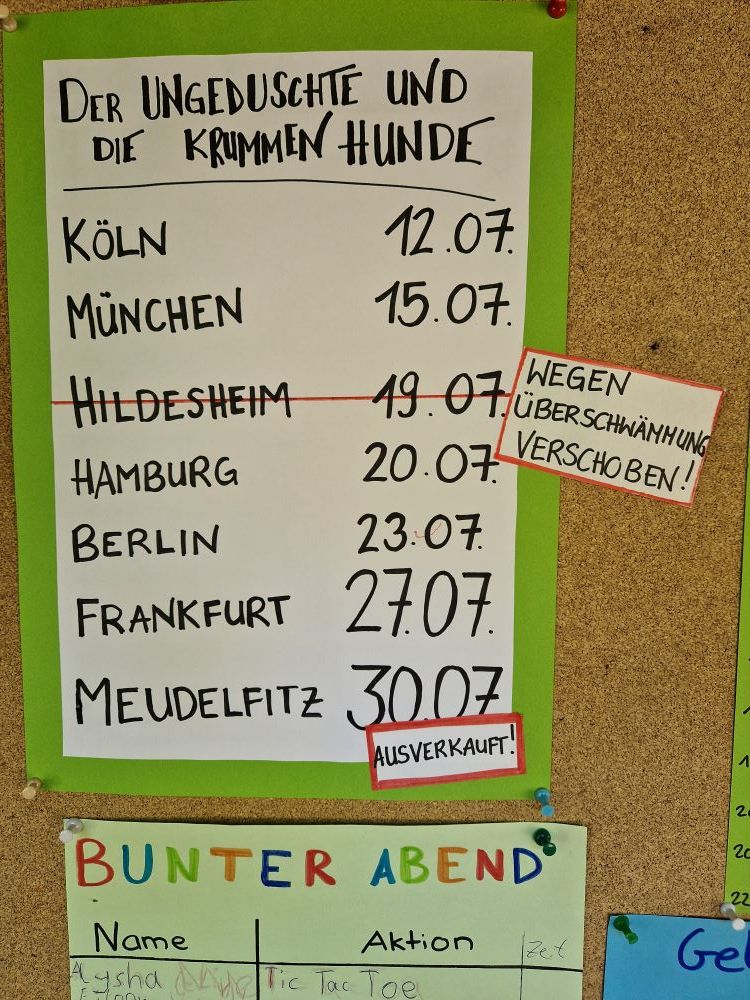 DER UNGEDUSCHTE UND
DIE KRUMMEN HUNDE
KÖLN 12.07.
MÜNCHEN 15.07.
HILDESHEIM 19.07.
WEGEN
ÜBERSCHWÄMMUNG
VERSCHOBEN!
HAMBURG 20.07.
BERLIN 23.07.
FRANKFURT 27.07.
MEUDELFITZ 30.07
AUSVERKAUFT!
BUNTER ABEND
Name Aktion Zeit
Alysha Tic Tac Toe
Gel